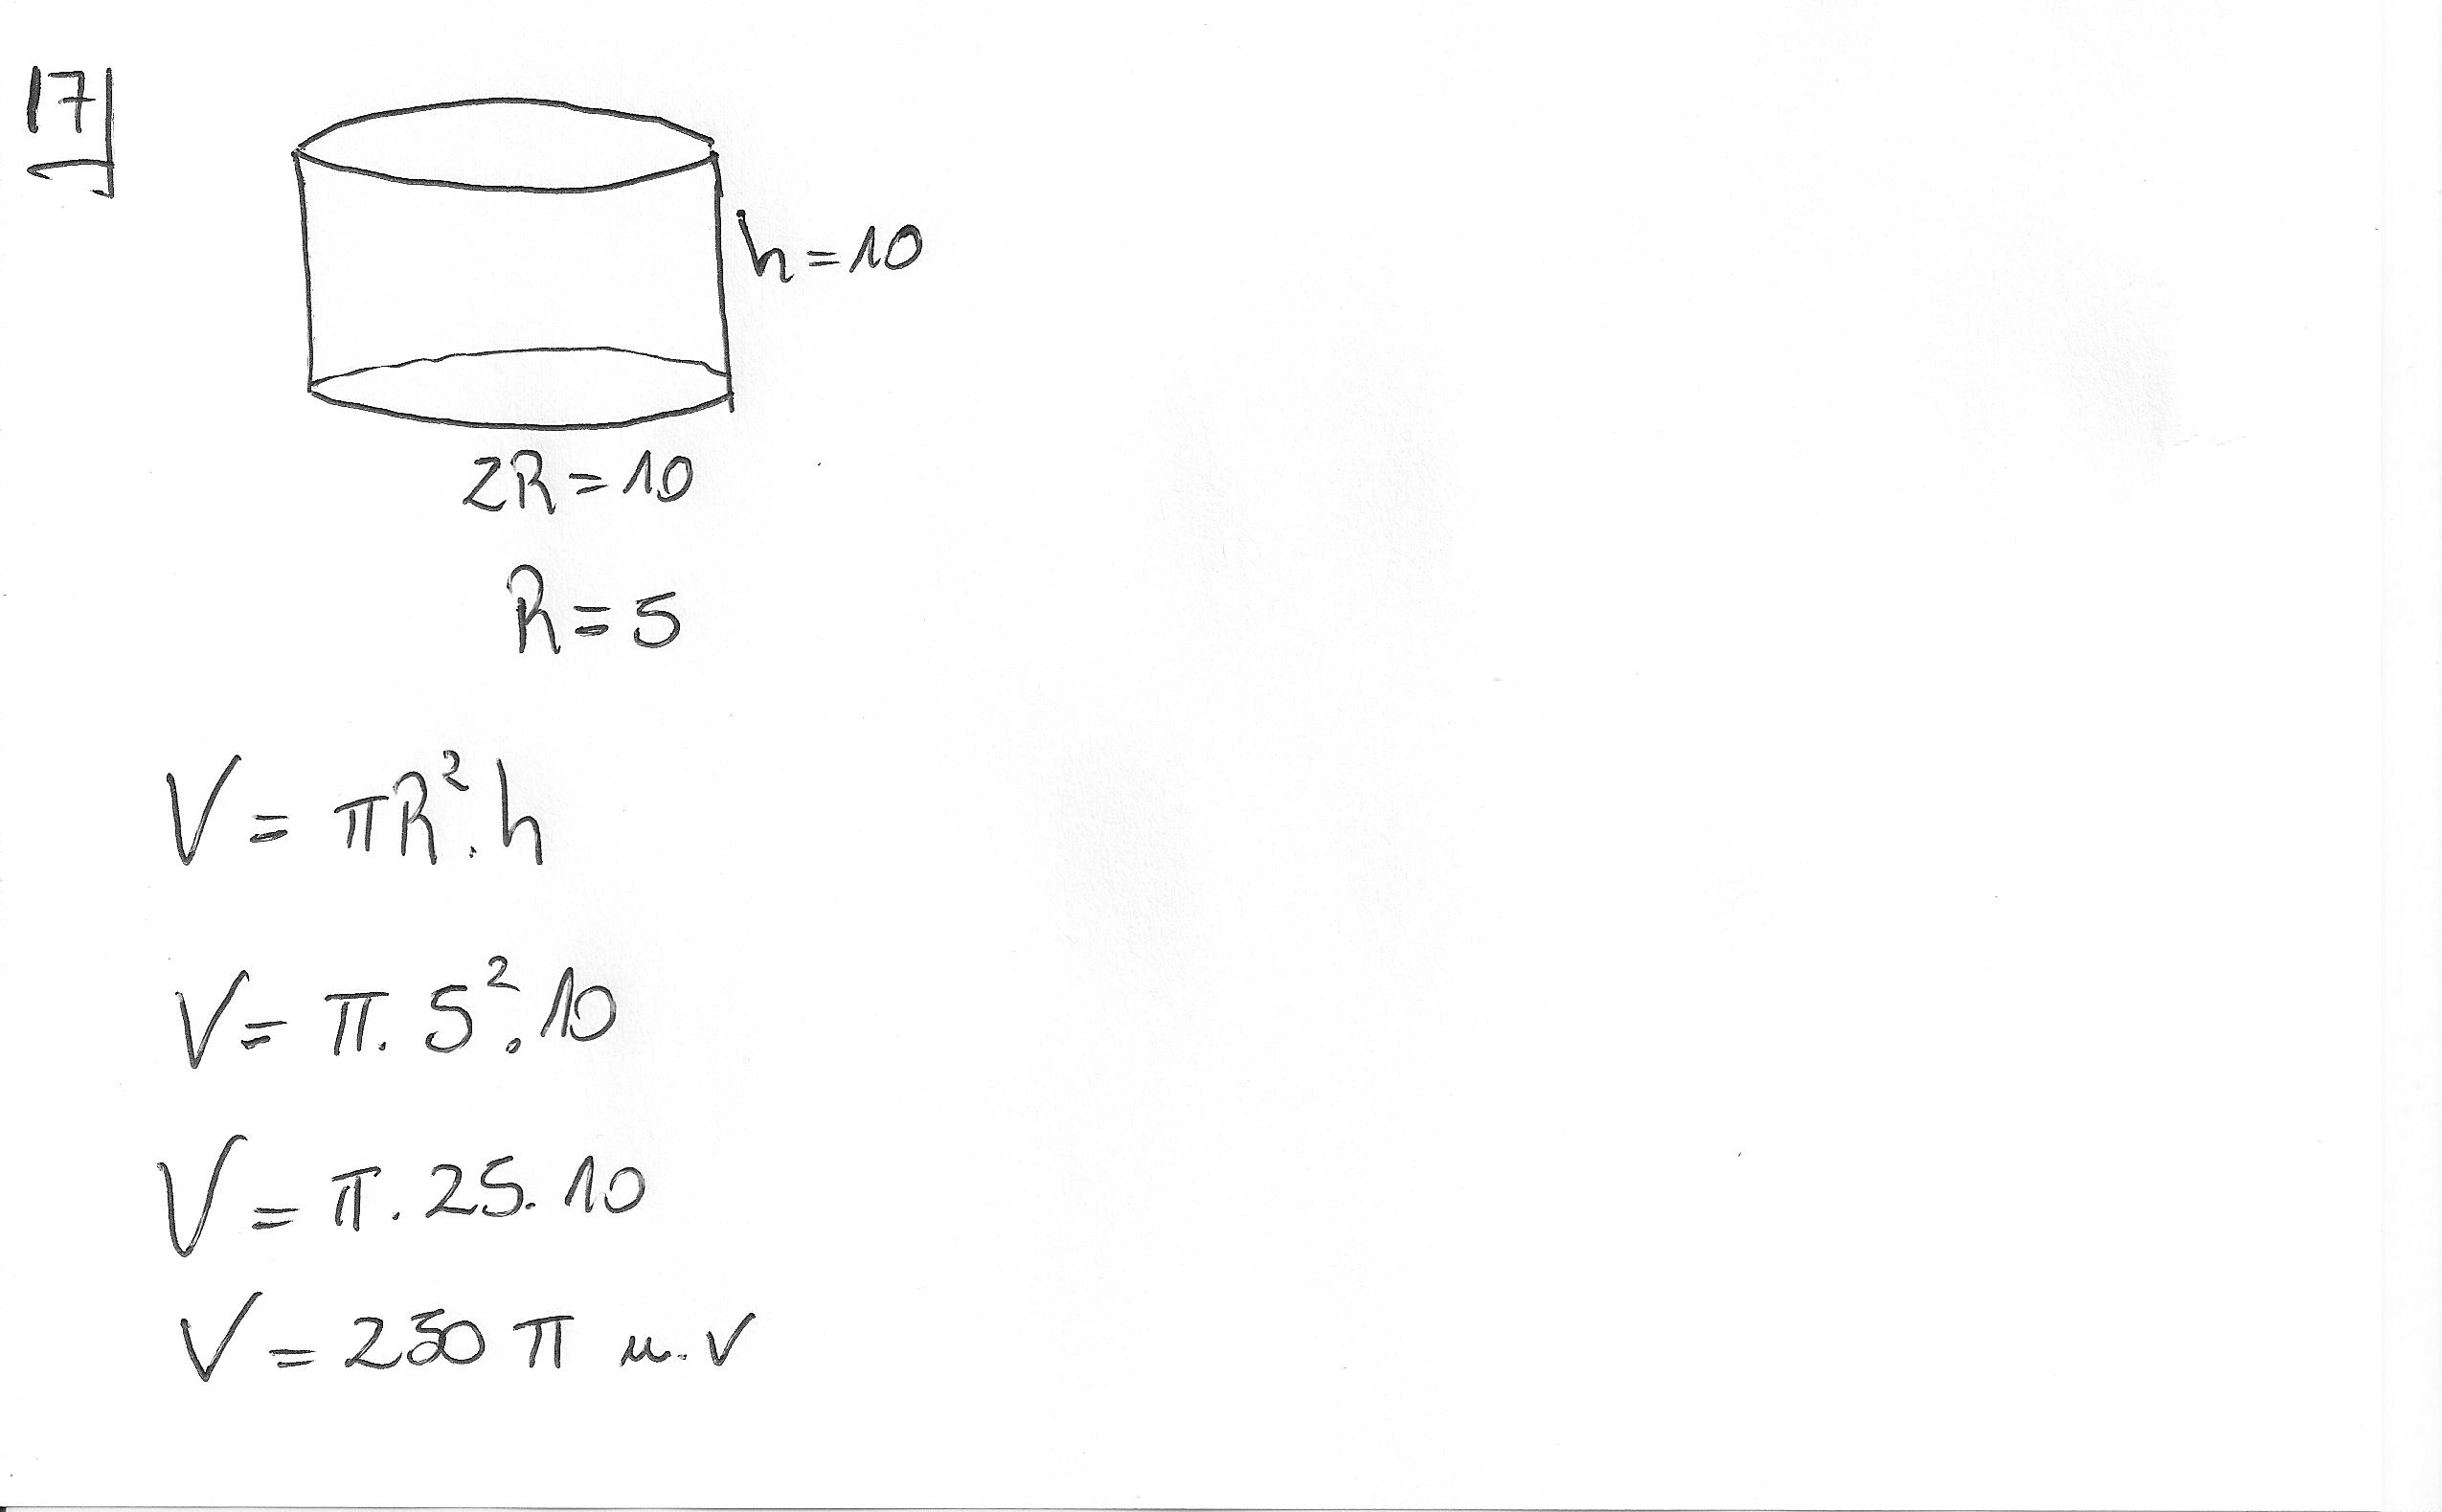 17
h = 10
2R = 10
R = 5
V = πR². h
V = π. 5². 10
V = π. 25. 10
V = 250 π u.v